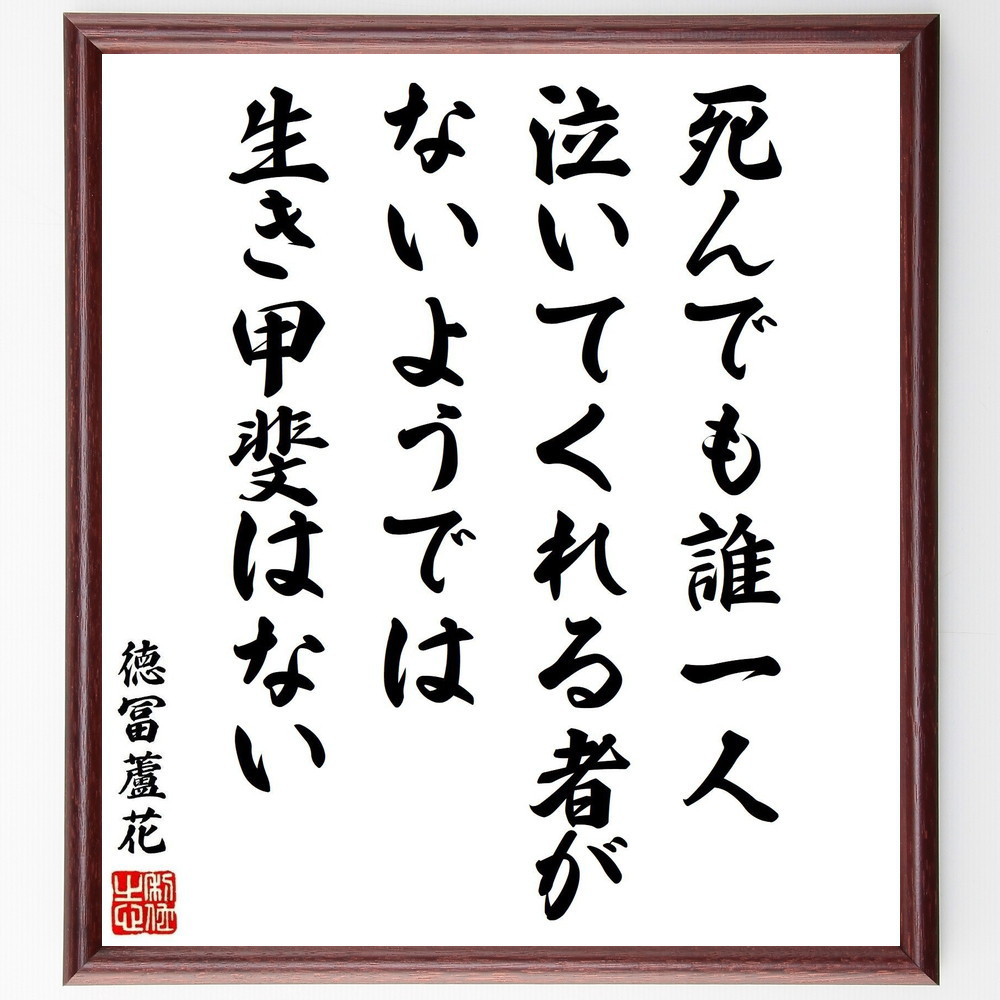 死んでも誰一人
泣いてくれる者が
ないようでは
生き甲斐はない
徳冨蘆花